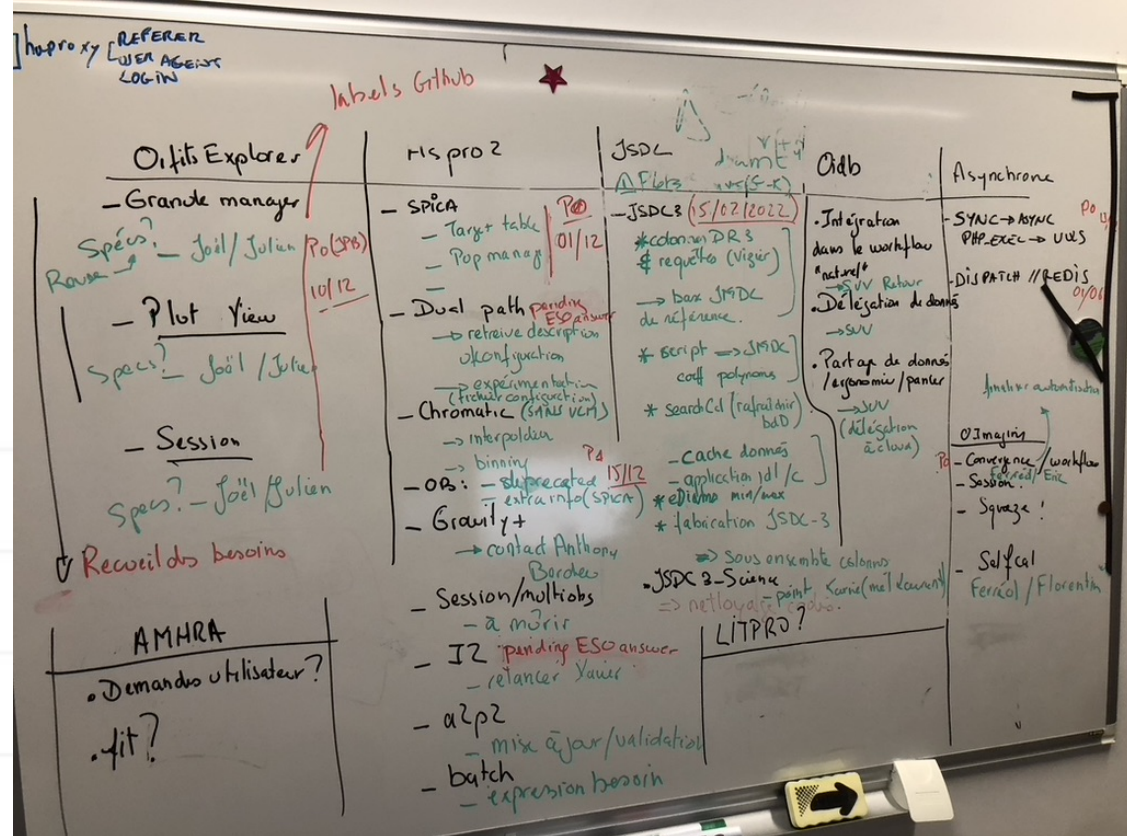 haproxy
REFERER
USER AGENT
LOGIN
labels Github
Oifits Explorer
- Granule manager
Spécs? - Joël/Julien
PO(JPB)
10/12
- Plot View
Specs? - Joël/Julien
- Session
Specs? - Joël/Julien
Recueil des besoins
AMHRA
• Demandes utilisateur?
• fit?
Aspro2
- SPICA
- Target table
- Pop manag
-
P0
01/12
- Dual path pending
ESO answer
→ retreive description
→ expérimentation
(fichier configuration)
- Chromatic (SANS VCM)
→ binning
P1
15/12
- OB: - deprecated
- extra info (SPICA)
- Gravity+
→ contact Anthony
- Session/multiobs
- à mûrir
- I2 pending ESO answer
- relancer
- a2p2
- mise à jour/validation
- batch
- expression besoin
JSDC
- JSDC3 (15/02/2022)
* colonnes DR3
& requêtes (vizier)
→ base JMDC
de référence.
* script → JMDC
coeff polynoms
* searchCal (rafraîchir
bdD)
- Cache donnés
- application idl/c
* eDiamo min/max
* fabrication JSDC-3
⇒ sous ensemble colonns
• JSDC3-Science
- point Karine (mél Laurent)
LITPRO?
Oidb
• Intégration
dans le workflow
"naturel"
→ SUV Retour
• Délégation de donnés
→ SUV
• Partage de donnés
/ergonomie/panier
→ SUV
(délégation
à clova)
Asynchrone
- SYNC → ASYNC
PHP_EXEC → UWS
P0
- DISPATCH // REDIS
OImaging
P0
- Convergence/workflow
Ferréol/Eric
- Session:
- Sqvaze!
- Selfcal
Ferréol/Florentin